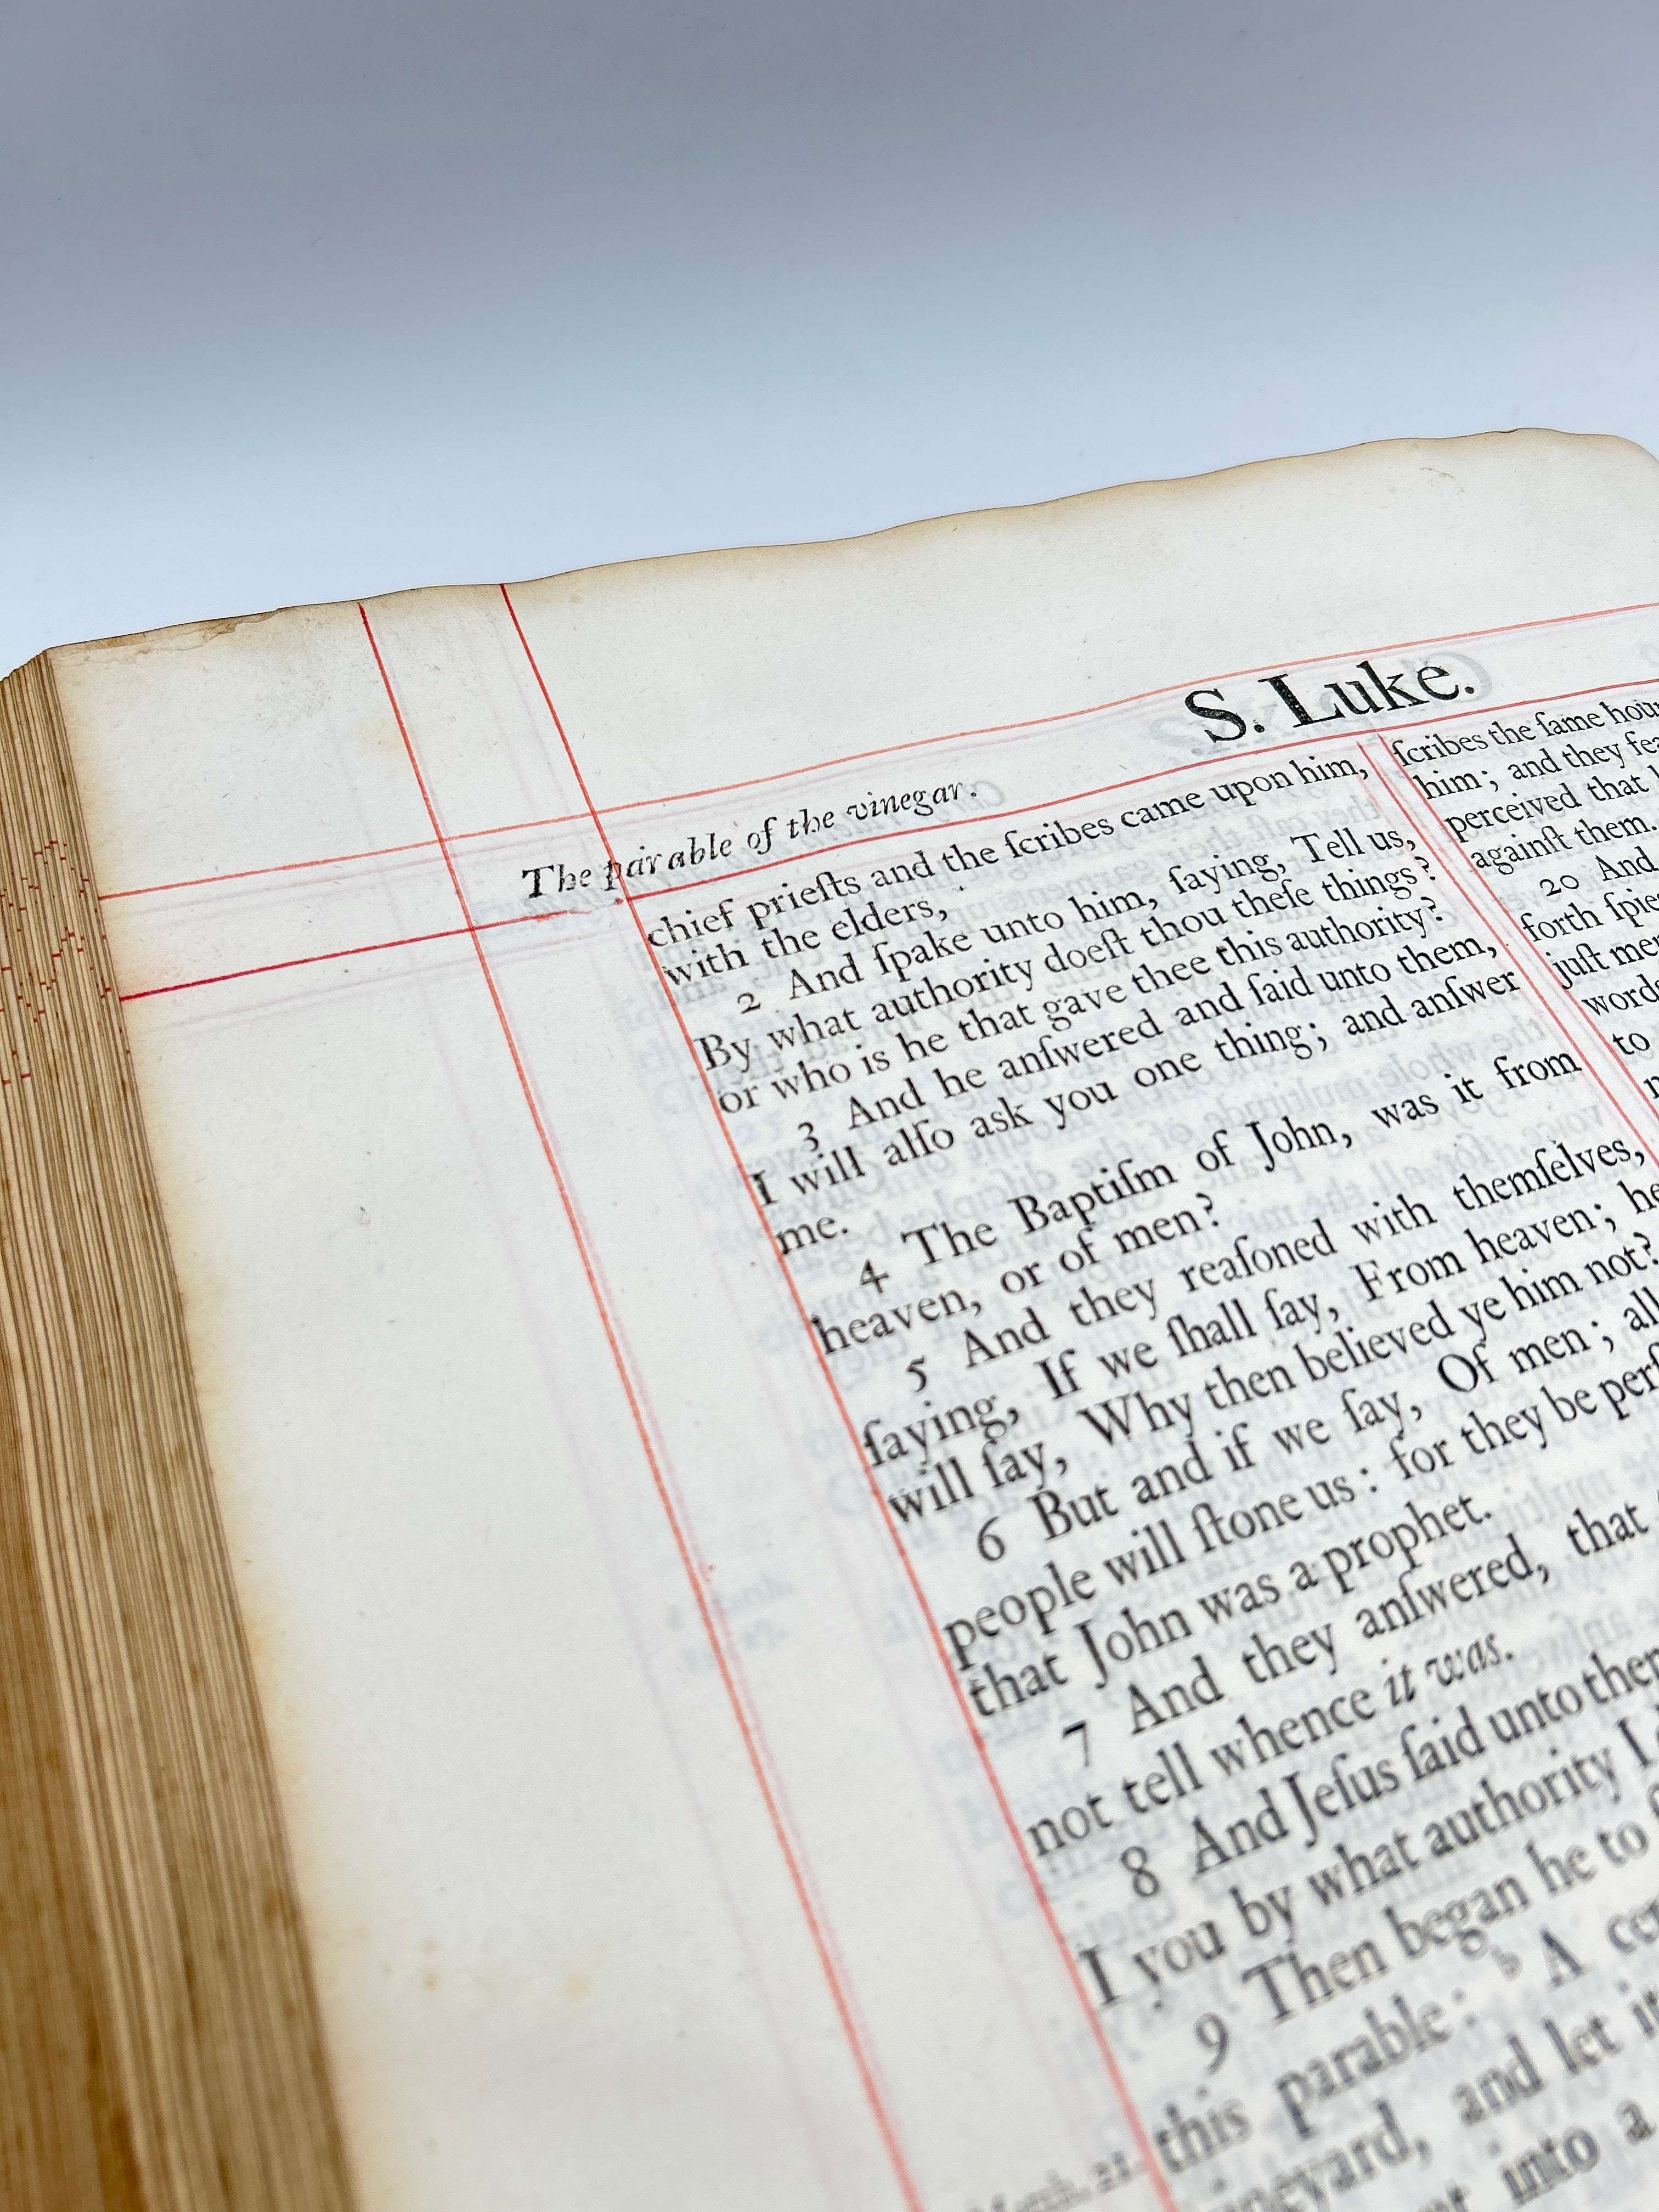 S. Luke.
The parable of the vinegar.
chief prieſts and the ſcribes came upon him,
with the elders,
2 And ſpake unto him, ſaying, Tell us,
By what authority doeſt thou theſe things?
or who is he that gave thee this authority?
3 And he anſwered and ſaid unto them,
I will alſo ask you one thing; and anſwer
me.
4 The Baptiſm of John, was it from
heaven, or of men?
5 And they reaſoned with themſelves,
ſaying, If we ſhall ſay, From heaven; he
will ſay, Why then believed ye him not?
6 But and if we ſay, Of men; all
people will ſtone us: for they be
that John was a prophet.
7 And they anſwered, that
not tell whence it was.
8 And Jeſus ſaid unto
I you by what authority I
9 Then began he to
this parable: b A
and let
into a
Matth. 21.
ſcribes the ſame
him; and they
perceived that
againſt them.
20 And
forth
juſt
to